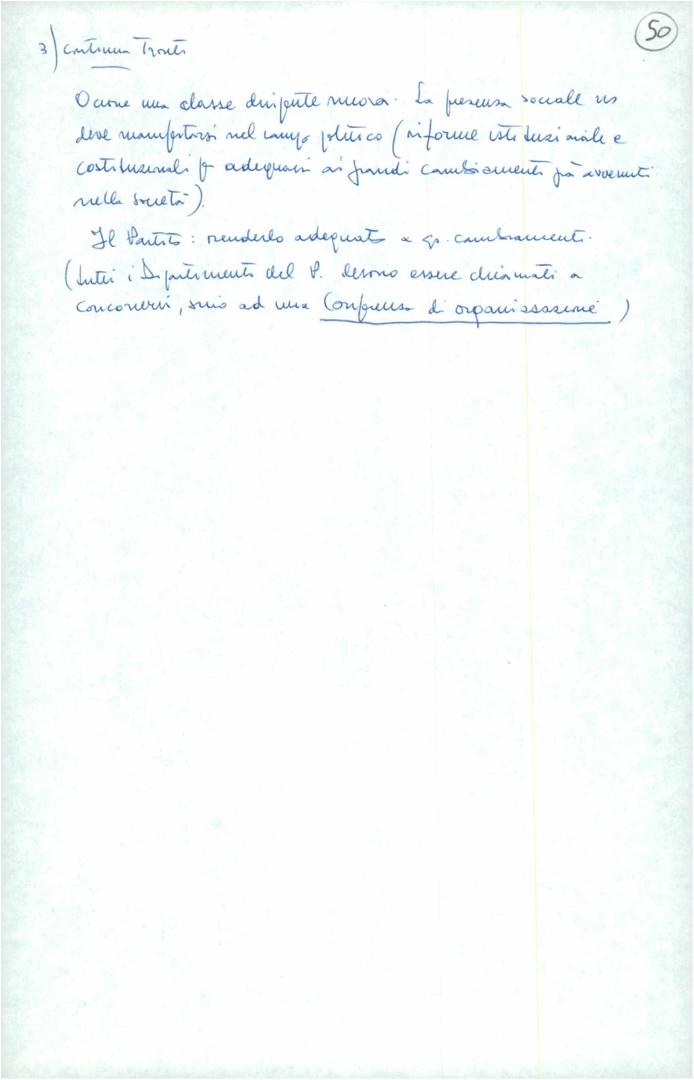 50
3) continua Tronti
Occorre una classe dirigente nuova. La presenza sociale ns
deve manifestarsi nel campo politico (riforme istituzionali e
costituzionali p adeguarsi ai grandi cambiamenti già avvenuti
nella società).
Il Partito: renderlo adeguato a qs. cambiamenti.
(tutti i Dipartimenti del P. devono essere chiamati a
concorrervi, sino ad una Conferenza di organizzazione)